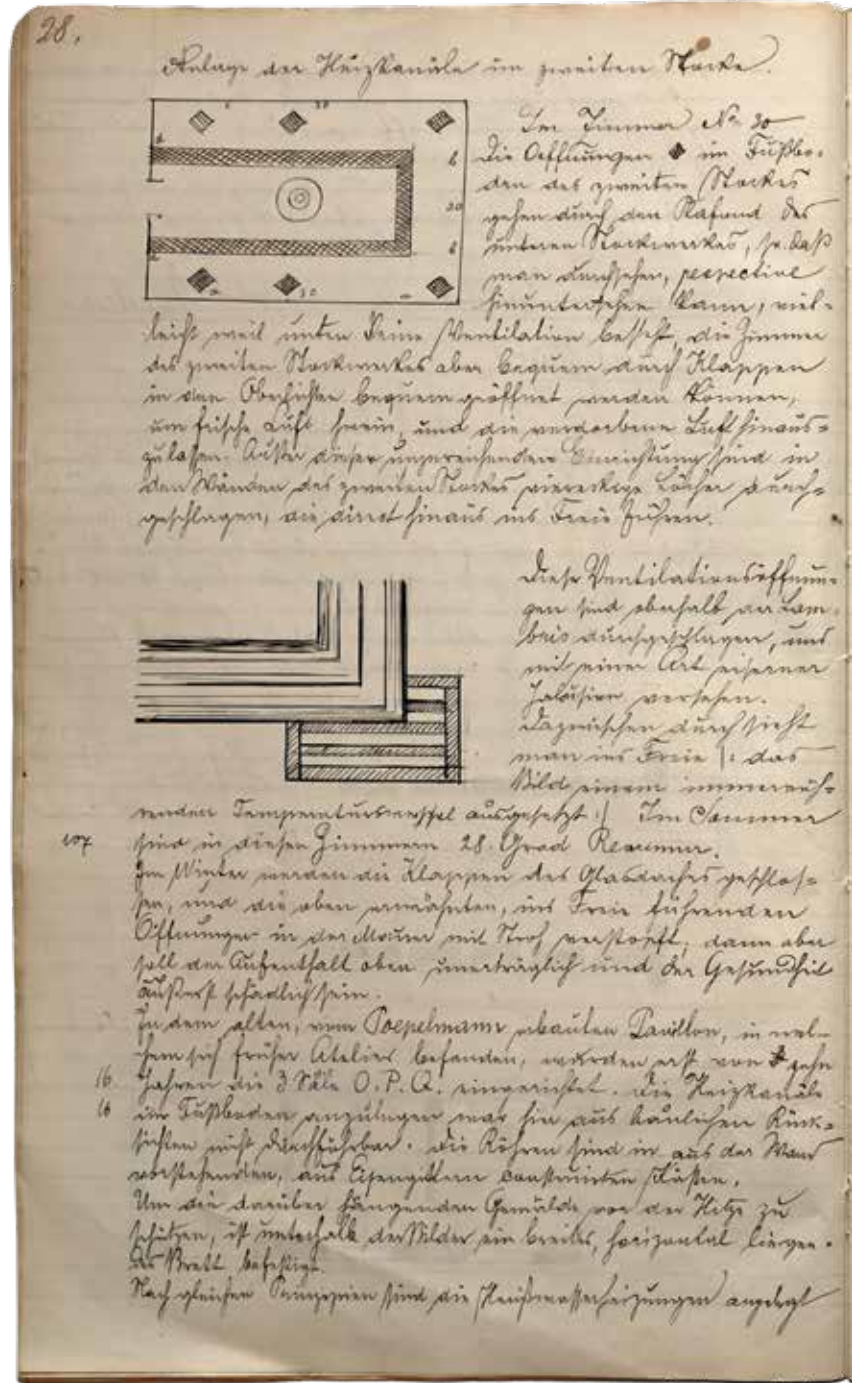 28.
Anlage der Heizkanäle im zweiten Stocke.
Im Zimmer No 30
die Oeffnungen ◆ im Fußbo-
den des zweiten Stockes
gehen durch den Plafond des
unteren Stockwerkes, so daß
man durchsehen, respective
hinuntersehen kann, viel-
leicht weil unten keine Ventilation besteht, die Zimmer
des zweiten Stockwerkes aber bequem durch Klappen
in den Oberlichten bequem geöffnet werden können,
um frische Luft herein, und die verdorbene Luft hinaus-
zulassen. Außer dieser unzureichenden Einrichtung sind in
den Wänden des zweiten Stockes viereckige Löcher durch-
geschlagen, die direct hinaus ins Freie führen.
Diese Ventilationsöffnun-
gen sind oberhalb der Lam-
bris durchgeschlagen, und
mit einer Art eiserner
Jalousien versehen.
Dazwischen durch sieht
man ins Freie |: das
Bild einem immerwäh-
renden Temperaturwechsel ausgesetzt :| Im Sommer
sind in diesen Zimmern 28. Grad Reaumur.
Im Winter werden die Klappen des Glasdaches geschlos-
sen, und die oben erwähnten, ins Freie führenden
Öffnungen in der Mauer mit Stroh verstopft; dann aber
soll der Aufenthalt oben unerträglich und der Gesundheit
äußerst schädlich sein.
In dem alten, vom Poepelmann erbauten Pavillon, in wel-
chem sich früher Ateliers befanden, wurden erst vor zehn
16. Jahren die 3 Säle O. P. Q. eingerichtet. Die Heizkanäle
16 im Fußboden anzulegen war hier aus baulichen Rück-
sichten nicht durchführbar. Die Röhren sind in aus der Wand
vorstehenden, aus Eisengittern construirten Kästen.
Um die darüber hängenden Gemälde vor der Hitze zu
schützen, ist unterhalb der Bilder ein breites, horizontal liegen-
des Brett befestigt.
Nach gleichen Principien sind die Heißwasserheizungen angelegt